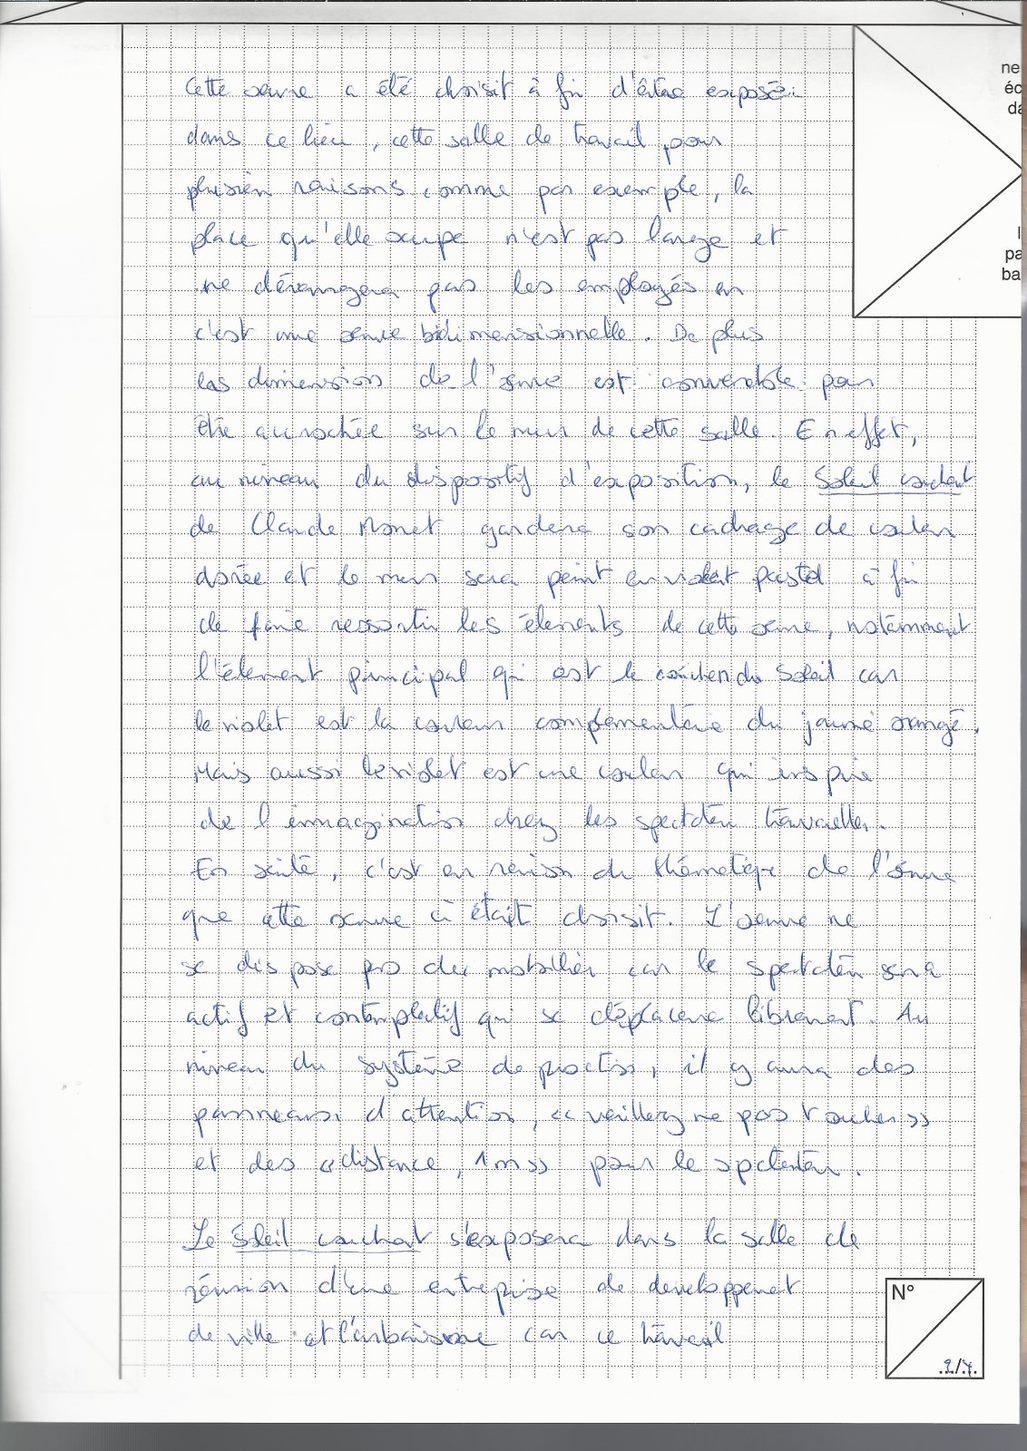 ne
éc
da
l
pa
ba
Cette oeuvre a été choisit à fin d'être exposée
dans ce lieu, cette salle de travail pour
plusieur raisons comme par exemple, la
place qu'elle ocupe n'est pas large et
ne dérangera pas les employés car
c'est une oeuvre bidimensionnelle. De plus
les dimension de l'oeuvre est convenable pour
être accrochée sur le mur de cette salle. En effet,
au niveau du dispositif d'exposition, le Soleil couchant
de Claude Monet gardera son cadrage de couleur
dorée et le mur sera peint en violet pastel à fin
de faire ressortir les élements de cette oeuvre, notamment
l'élement principal qui est le coucher du Soleil car
le violet est la couleur complementaire du jaune orangé.
Mais aussi le violet est une couleur qui inspire
de l'immagination chez les spectateur travailler.
En suite, c'est en raison du thématique de l'oeuvre
que cette oeuvre à était choisit. L'oeuvre ne
se dispose pas du mobilier car le spectateur sera
actif et contemplatif qui se déplacera librement. Au
niveau du système de protection, il y aura des
panneaux d'attention, « veillez ne pas toucher »
et des « distance, 1m » pour le spectateur.
Le Soleil couchant s'exposera dans la salle de
réunion d'une entreprise de developpement
de ville et l'urbanisme car ce travail
N°
2/7